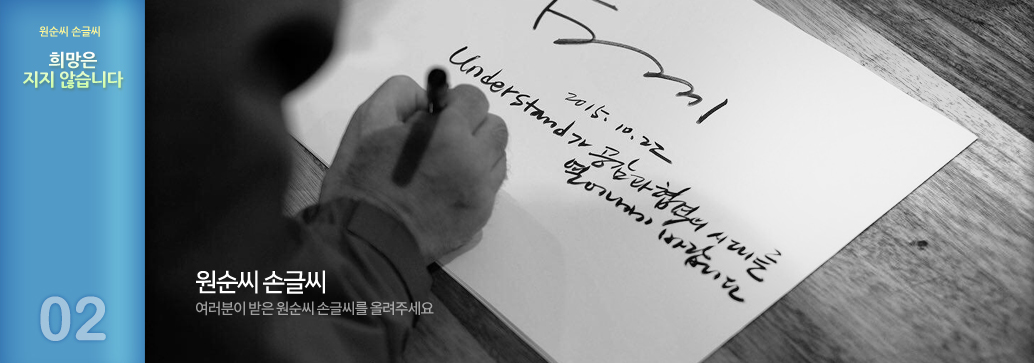 원순씨 손글씨
희망은
지지 않습니다
02
2015. 10. 22
Understand가 공감과 협력의 시대를
열어나가기 바랍니다
원순씨 손글씨
여러분이 받은 원순씨 손글씨를 올려주세요